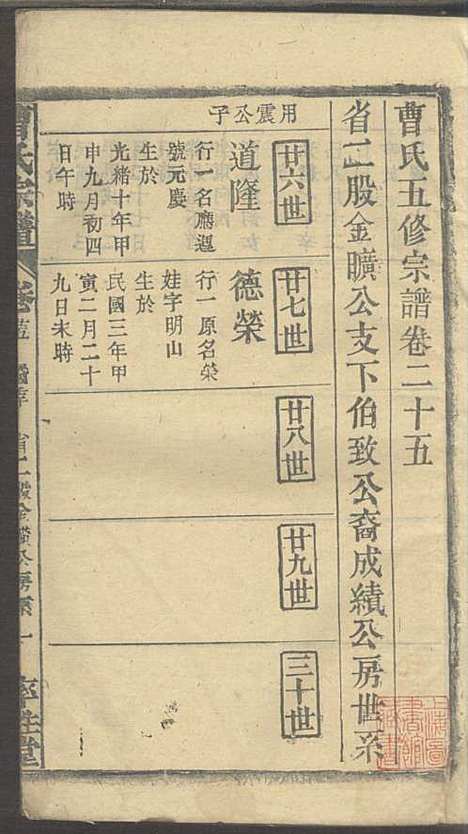 曹氏五修宗譜卷二十五
省二股金曠公支下伯致公裔成績公房世系
用震公子
廿六世
道隆
行一名應遲
號元慶
生於
光緒十年甲
申九月初四
日午時
廿七世
德榮
行一原名榮
娃字明山
生於
民國三年甲
寅二月二十
九日未時
廿八世
廿九世
三十世
曹氏宗譜
上海圖
書館
藏書